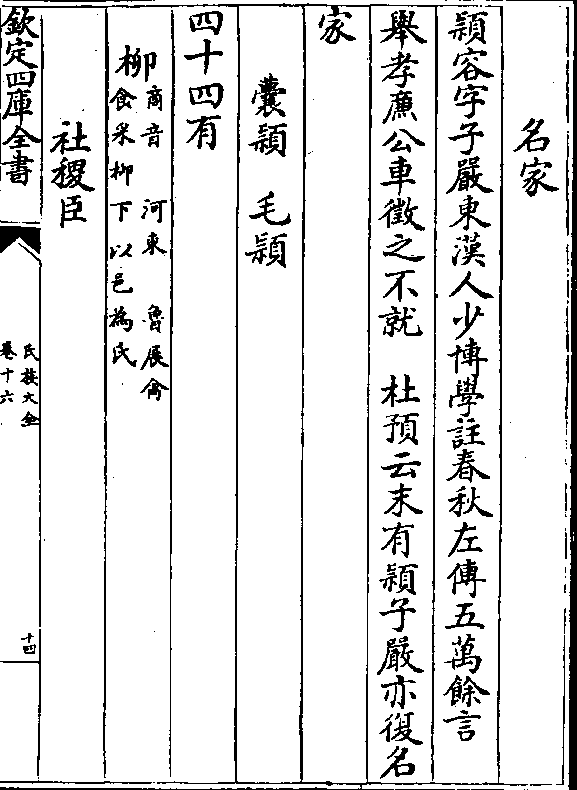 名家
頴容字子嚴東漢人少博學註春秋左傳五萬餘言
舉孝廉公車徵之不就　杜預云末有頴子嚴亦復名
家
囊頴　毛頴
四十四有
柳商音　河東　魯展禽
食采柳下以邑為氏
社稷臣
欽定四庫全書
氏族大全
卷十六
十四